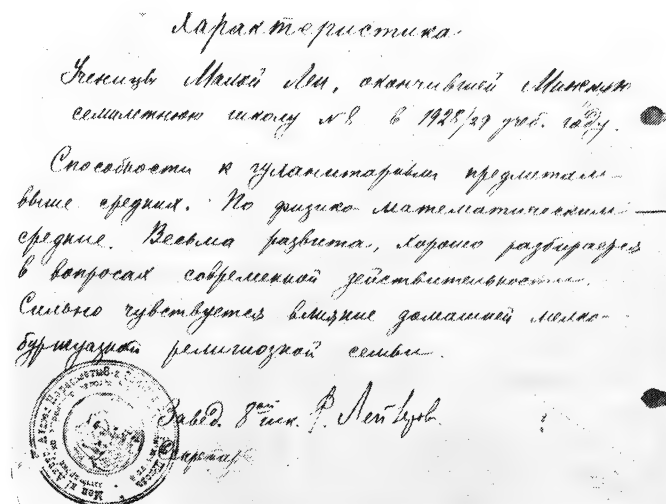 Характеристика
Ученицы Малкой Леи, окончившей Минскую
семилетнюю школу № 8 в 1928/29 учеб. году.
Способности к гуманитарным предметам
выше средних. По физико-математическим —
средние. Весьма развита, хорошо разбирается
в вопросах современной действительности.
Сильно чувствуется влияние домашней мелко-
буржуазной религиозной семьи.
Завед. 8ой шк. Р.
Секретарь